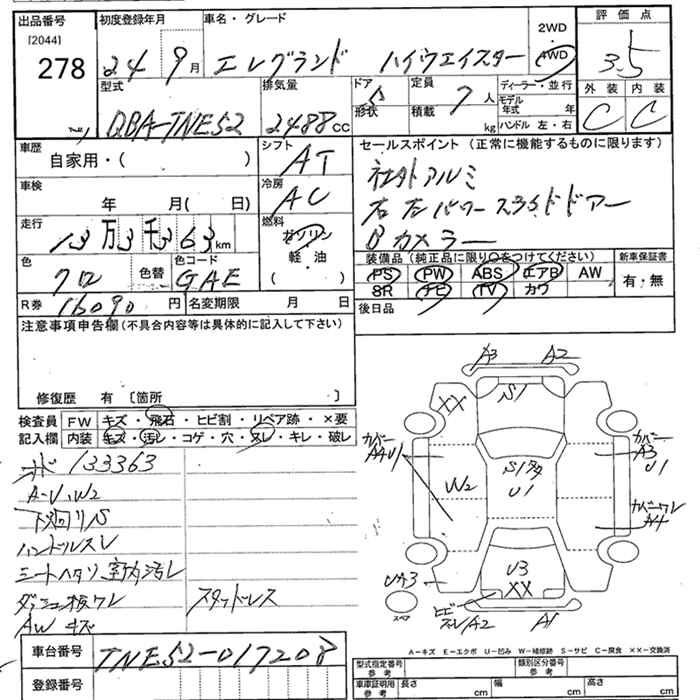 出品番号
[2044]
278
初度登録年月
24 9月
車名・グレード
エレグランド ハイウェイスター
2WD
・
4WD
評価点
3.5
外装 内装
C C
型式
QBA-TNE52
排気量
2488cc
ドア
5
形状
定員
7人
積載
kg
ディーラー・並行
モデル年式 年
ハンドル 左・右
車歴
自家用・( )
シフト
AT
車検
年 月( 日)
冷房
AC
走行
13万3千363km
燃料
ガソリン
軽・油
( )
色
クロ
色替
色コード
GAE
R券
16090円
名変期限 月 日
セールスポイント(正常に機能するものに限ります)
社外アルミ
右左パワースライドドアー
Bカメラー
装備品(純正品に限り○をつけてください)
PS PW ABS エアB AW
SR ナビ TV カワ
新車保証書
有・無
後日品
注意事項申告欄(不具合内容等は具体的に記入して下さい)
修復歴 有〔箇所 〕
検査員記入欄
FW キズ・飛石・ヒビ割・リペア跡・×要
内装 キズ・汚レ・コゲ・穴・スレ・キレ・破レ
133363
A-U、W2
下廻りS
ハンドルスレ
シートヘタリ 室内汚レ
ダッシュ板ワレ
スタッドレス
AW キズ
A3 A2
XX
S1
カバー
A4U1
カバー
A3
U1
W2
S1多
U1
カバーワレ
A4
UA3
U3
XX
スペア
ヒビ
スレA2
A1
A-キズ E-エクボ U-凹み W-補修跡 S-サビ C-腐食 XX-交換済
車台番号
TNE52-017208
登録番号
型式指定番号
参考
類別区分番号
参考
車庫証明用
参考
長さ cm
幅 cm
高さ cm